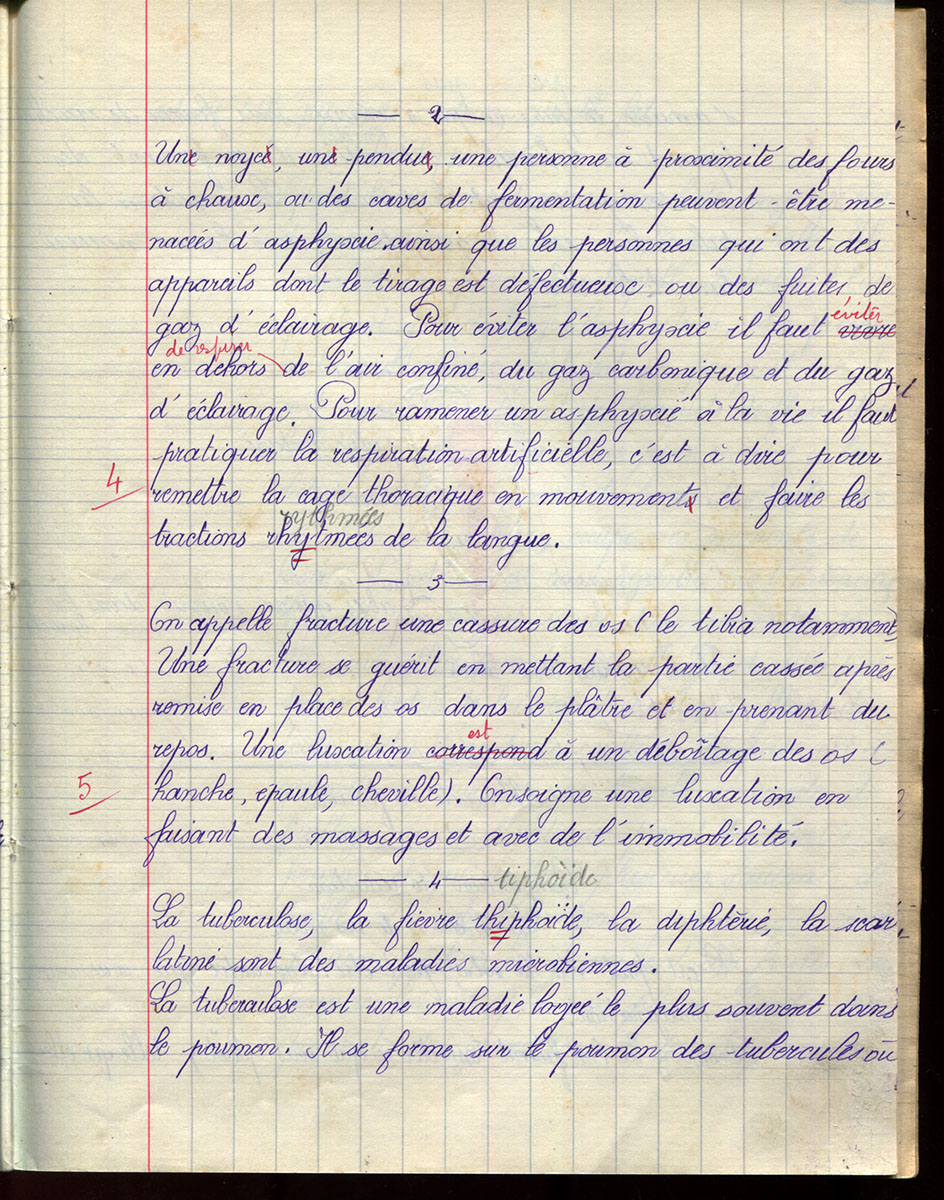 2
Une noyée, une pendue, une personne à proximité des fours
à chaux, ou des caves de fermentation peuvent-être me-
nacées d'asphyxie ainsi que les personnes qui ont des
appareils dont le tirage est défectueux ou des fuites de
éviter
gaz d'éclairage. Pour éviter l'asphyxie il faut vivre
de respirer
en dehors de l'air confiné, du gaz carbonique et du gaz
d'éclairage. Pour ramener un asphyxié à la vie il faut
pratiquer la respiration artificielle, c'est à dire pour
4
remettre la cage thoracique en mouvements et faire les
rythmées
tractions rhytmées de la langue.
3
On appelle fracture une cassure des os (le tibia notamment)
Une fracture se guérit en mettant la partie cassée après
remise en place des os dans le plâtre et en prenant du
est
repos. Une luxation correspond à un déboîtage des os (
5
hanche, epaule, cheville). On soigne une luxation en
faisant des massages et avec de l'immobilité.
4 tiphoïde
La tuberculose, la fièvre thiphoïde, la diphtérie, la scar-
latine sont des maladies microbiennes.
La tuberculose est une maladie logée le plus souvent dans
le poumon. Il se forme sur le poumon des tubercules où